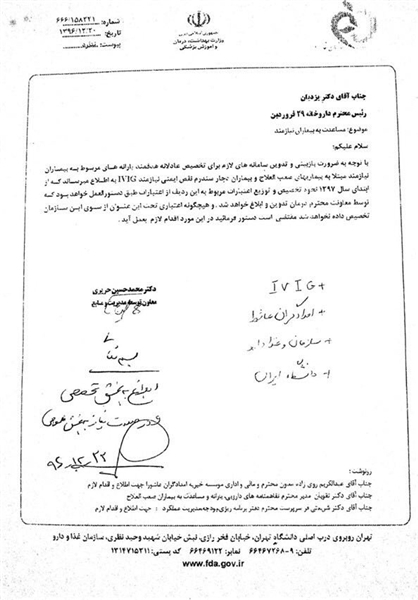 شماره: ۶۶۶/۱۵۸۲۲۱
تاریخ: ۱۳۹۶/۱۲/۲۰
پیوست: ندارد
جمهوری اسلامی ایران
وزارت بهداشت، درمان
و آموزش پزشکی
جناب آقای دکتر یزدیان
رئیس محترم داروخانه ۲۹ فروردین
موضوع: مساعدت به بیماران نیازمند
سلام علیکم؛
با توجه به ضرورت بازبینی و تدوین سامانه های لازم برای تخصیص عادلانه هدفمند یارانه های مربوط به بیماران
نیازمند مبتلا به بیماریهای صعب العلاج و بیماران دچار سندرم نقص ایمنی نیازمند IVIG به اطلاع میرساند که از
ابتدای سال ۱۳۹۷ نحوه تخصیص و توزیع اعتبارات مربوط به این ردیف از اعتبارات طبق دستورالعمل خواهد بود که
توسط معاونت محترم درمان تدوین و ابلاغ خواهد شد. و هیچگونه اعتباری تحت این عنوان از سوی این سازمان
تخصیص داده نخواهد شد مقتضی است دستور فرمائید در این مورد اقدام لازم بعمل آید.
دکتر محمدحسین حریری
معاون توسعه مدیریت و منابع
IVIG +
+ امدادگران عاشورا
+ سازمان غذا دارو
+ دانشگاه ایران
بخش تخصصی
۹۶،۱۲،۲۲
رونوشت:
جناب آقای عبدالکریم روی زاده معاون محترم و مالی و اداری موسسه خیریه امدادگران عاشورا جهت اطلاع و اقدام لازم
جناب آقای دکتر تقویان مدیر محترم تفاهمنامه های دارویی، یارانه و مساعدت به بیماران صعب العلاج
جناب آقای دکتر سرپرست محترم دفتر برنامه ریزی بودجه مدیریت عملکرد : جهت اطلاع و اقدام لازم
تهران روبروی درب اصلی دانشگاه تهران، خیابان فخر رازی، نبش خیابان شهید وحید نظری، سازمان غذا و دارو
تلفن: ۹-۶۶۴۶۷۲۶۸ نمابر: ۶۶۴۶۹۱۲۲ کد پستی: ۱۳۱۴۷۱۵۳۱۱
www.fda.gov.ir